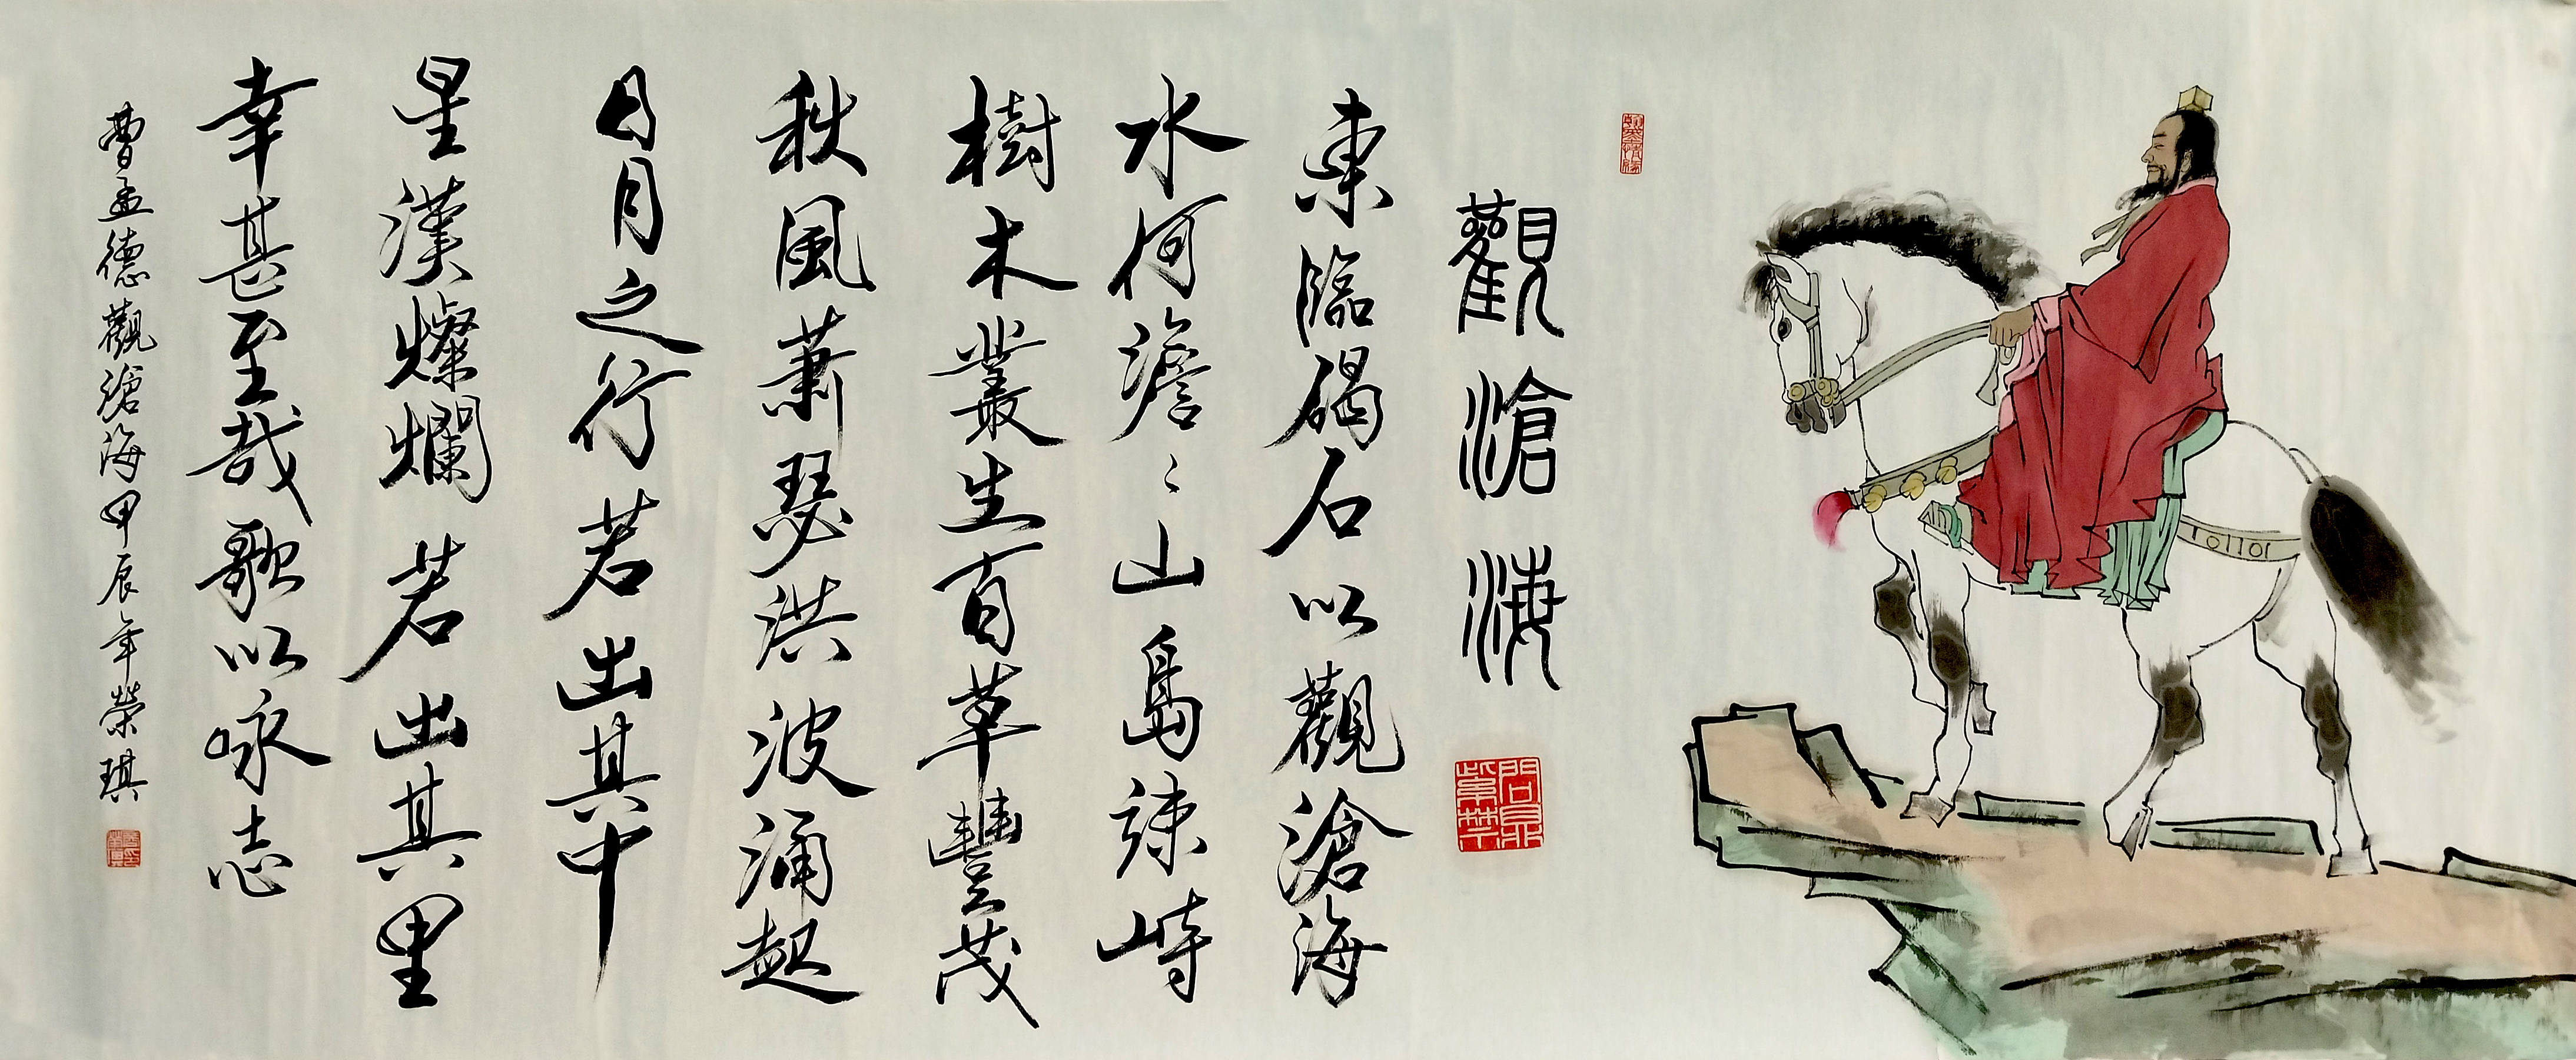 觀滄海
東臨碣石以觀滄海
水何澹〻山島竦峙
樹木叢生百草豐茂
秋風蕭瑟洪波涌起
日月之行若出其中
星漢燦爛若出其里
幸甚至哉歌以咏志
曹孟德觀滄海甲辰年榮琪